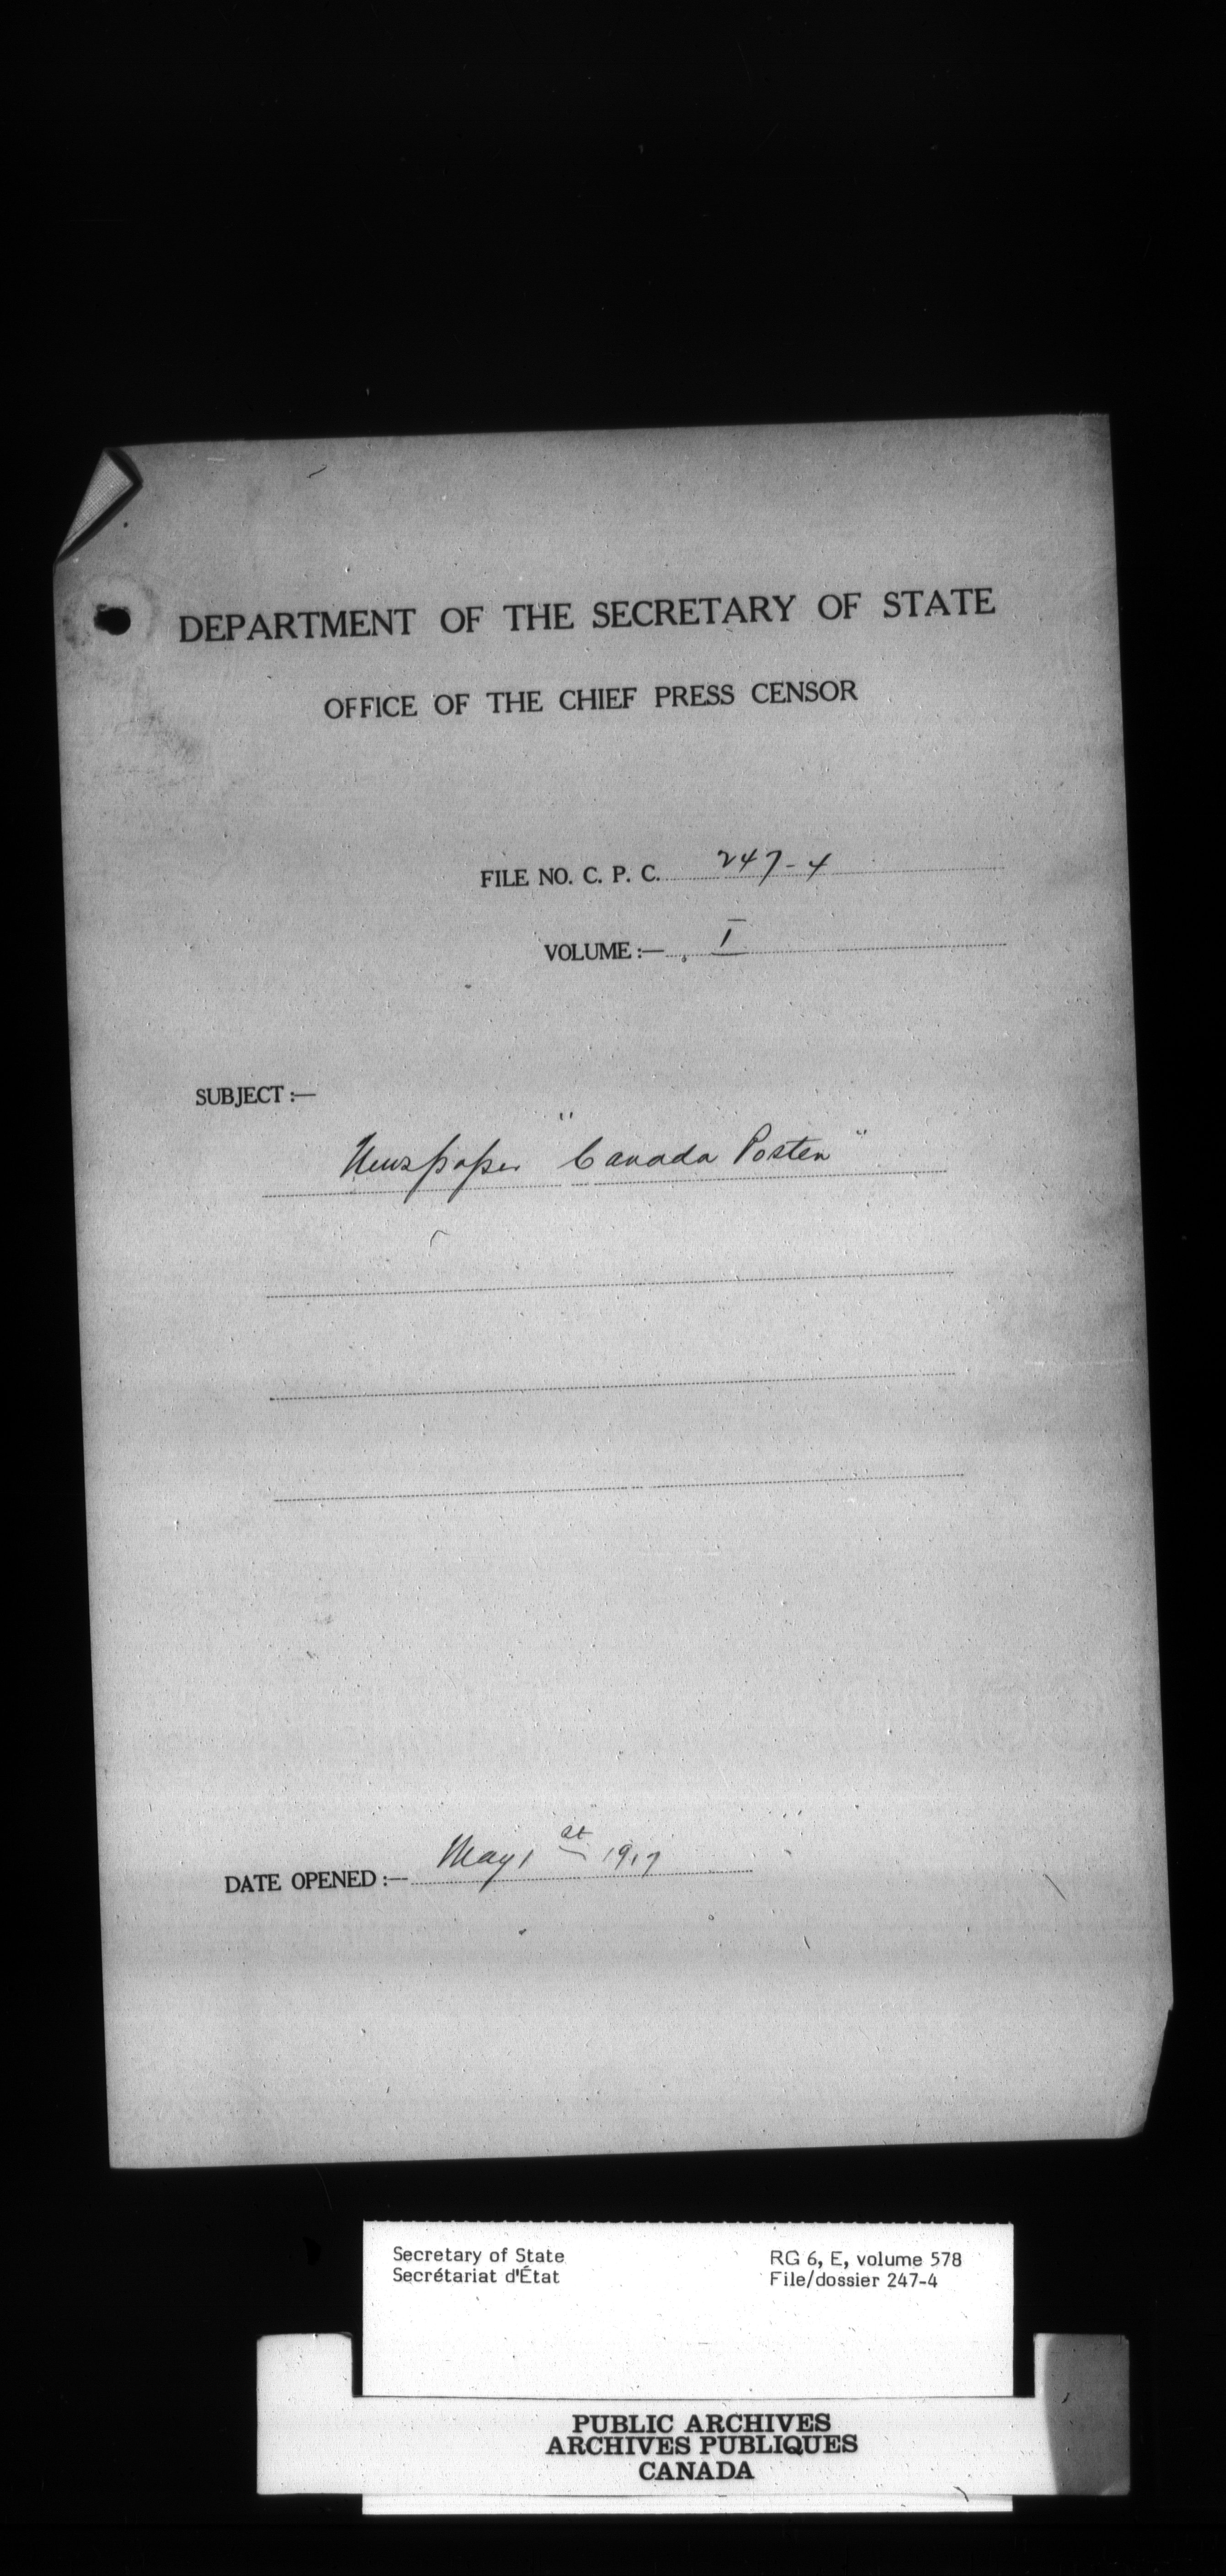 DEPARTMENT OF THE SECRETARY OF STATE
OFFICE OF THE CHIEF PRESS CENSOR
FILE NO. C. P. C. 247-4
VOLUME :— I
SUBJECT :—
Newspaper "Canada Posten"
DATE OPENED :— May 1st 1917
Secretary of State
Secrétariat d'État
RG 6, E, volume 578
File/dossier 247-4
PUBLIC ARCHIVES
ARCHIVES PUBLIQUES
CANADA